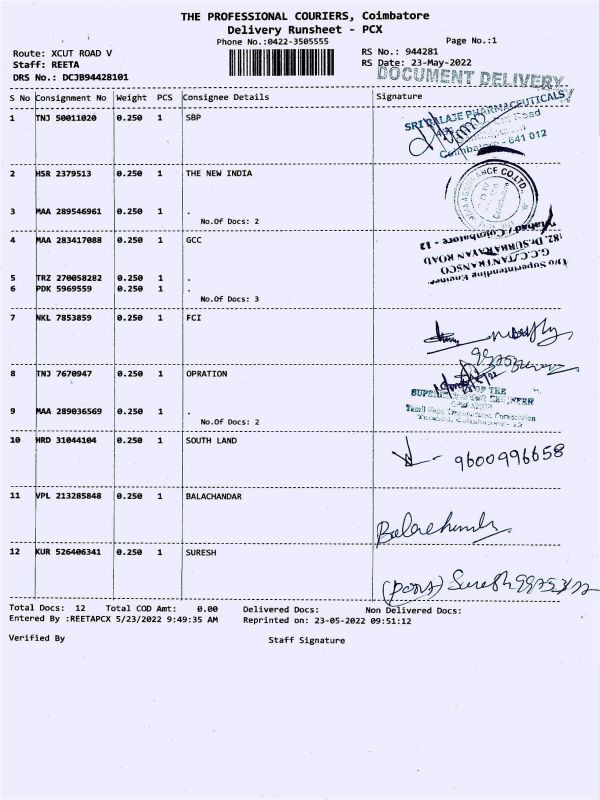 THE PROFESSIONAL COURIERS, Coimbatore
Delivery Runsheet - PCX
Phone No.:0422-3505555
Page No.:1
Route: XCUT ROAD V
RS No.: 944281
Staff: REETA
RS Date: 23-May-2022
DRS No.: DCJB94428101
DOCUMENT DELIVERY
S No Consignment No Weight PCS Consignee Details Signature
1 TNJ 50011020 0.250 1 SBP
SRI BALAJE PHARMACEUTICALS
Road
Coimbatore - 641 012
2 HSR 2379513 0.250 1 THE NEW INDIA
ASSURANCE CO.LTD.
3 MAA 289546961 0.250 1 .
No.Of Docs: 2
4 MAA 283417088 0.250 1 GCC
O/o Superintending Engineer
G.C.C./TANTRANSCO
182, Dr.SUBBARAYAN ROAD
Tatabad / Coimbatore - 12
5 TRZ 270058282 0.250 1 .
6 PDK 5969559 0.250 1 .
No.Of Docs: 3
7 NKL 7853859 0.250 1 FCI
8 TNJ 7670947 0.250 1 OPRATION
OF THE
ENGINEER
9 MAA 289036569 0.250 1 .
No.Of Docs: 2
10 HRD 31044104 0.250 1 SOUTH LAND
9600996658
11 VPL 213285848 0.250 1 BALACHANDAR
Balachandar
12 KUR 526406341 0.250 1 SURESH
Suresh
Total Docs: 12 Total COD Amt: 0.00 Delivered Docs: Non Delivered Docs:
Entered By :REETAPCX 5/23/2022 9:49:35 AM Reprinted on: 23-05-2022 09:51:12
Verified By Staff Signature